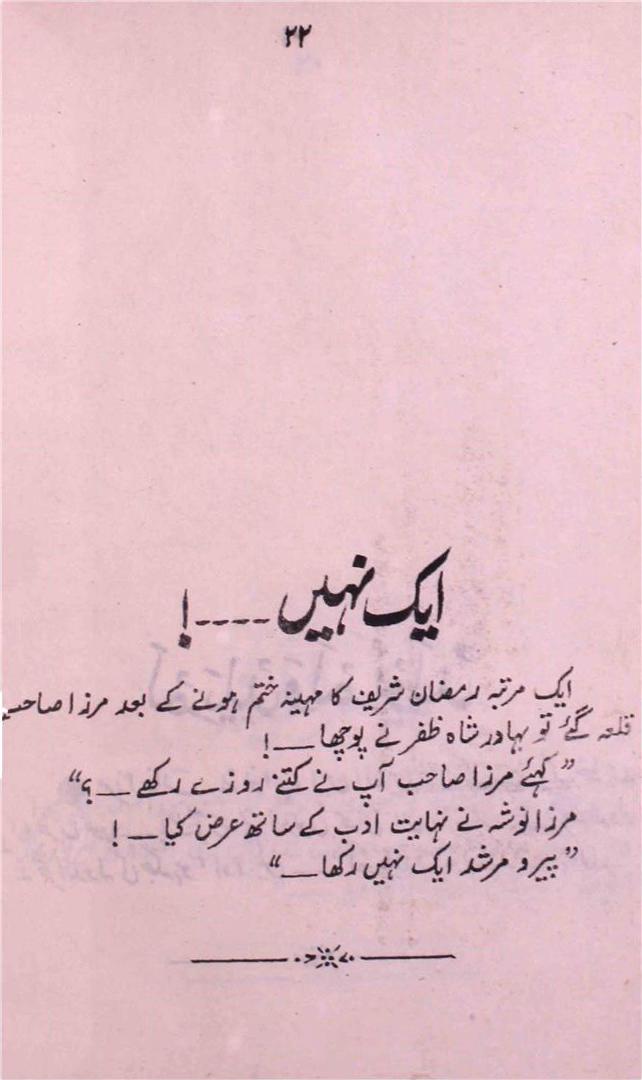 ۲۲
ایک نہیں ----!
ایک مرتبہ رمضان شریف کا مہینہ ختم ہونے کے بعد مرزا صاحب
قلعہ گئے تو بہادر شاہ ظفر نے پوچھا ـــ !
”کہئے مرزا صاحب آپ نے کتنے روزے رکھے ـــ ؟“
مرزا نوشہ نے نہایت ادب کے ساتھ عرض کیا ـــ !
”پیر و مرشد ایک نہیں رکھا ـــ“